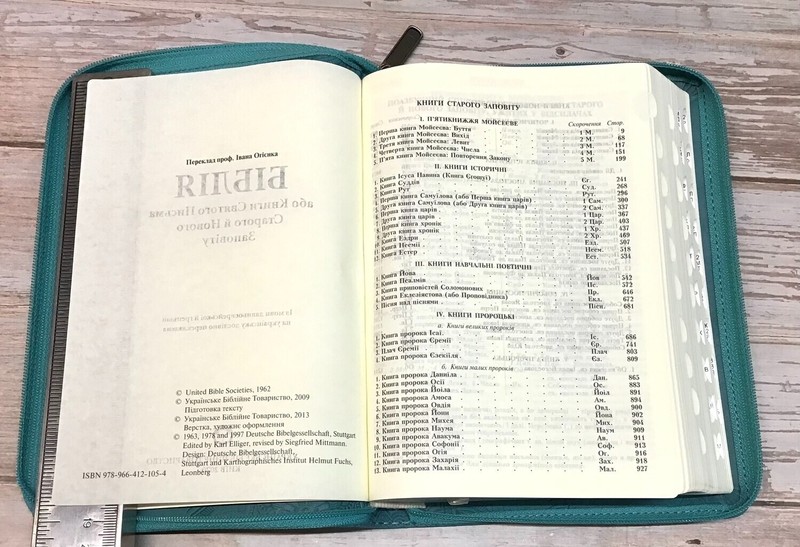 Переклад проф. Івана Огієнка
БІБЛІЯ
або Книги Святого Письма
Старого й Нового
Заповіту
Із мови давньоєврейської й грецької
на українську дослівно перекладена
© United Bible Societies, 1962
© Українське Біблійне Товариство, 2009
Підготовка тексту
© Українське Біблійне Товариство, 2013
Верстка, художнє оформлення
© 1963, 1978 and 1997 Deutsche Bibelgesellschaft, Stuttgart
Edited by Karl Elliger, revised by Siegfried Mittmann.
Design: Deutsche Bibelgesellschaft,
Stuttgart and Karthographisches Institut Helmut Fuchs,
Leonberg
ISBN 978-966-412-105-4
КНИГИ СТАРОГО ЗАПОВІТУ
І. П'ЯТИКНИЖЖЯ МОЙСЕЄВЕ
Скорочення Стор.
1. Перша книга Мойсеєва: Буття 1 М. 9
2. Друга книга Мойсеєва: Вихід 2 М. 68
3. Третя книга Мойсеєва: Левит 3 М. 117
4. Четверта книга Мойсеєва: Числа 4 М. 151
5. П'ята книга Мойсеєва: Повторення Закону 5 М. 199
ІІ. КНИГИ ІСТОРИЧНІ
1. Книга Ісуса Навина (Книга Єгошуї) Єг. 241
2. Книга Суддів Суд. 268
3. Книга Рут Рут. 296
4. Перша книга Самуїлова (або Перша книга царів) 1 Сам. 300
5. Друга книга Самуїлова (або Друга книга царів) 2 Сам. 337
6. Перша книга царів 1 Цар. 367
7. Друга книга царів 2 Цар. 403
8. Перша книга хронік 1 Хр. 437
9. Друга книга хронік 2 Хр. 469
10. Книга Ездри Езд. 507
11. Книга Неемії Неєм. 518
12. Книга Естер Ест. 534
ІІІ. КНИГИ НАВЧАЛЬНІ ПОЕТИЧНІ
1. Книга Йова Йов 542
2. Книга Псалмів Пс. 572
3. Книга приповістей Соломонових Пр. 646
4. Книга Екклезіястова (або Проповідника) Екл. 672
5. Пісня над піснями Пісн. 681
IV. КНИГИ ПРОРОЦЬКІ
а. Книги великих пророків
1. Книга пророка Ісаї Іс. 686
2. Книга пророка Єремії Єр. 741
3. Плач Єремії Плач 803
4. Книга пророка Єзекіїля Єз. 809
б. Книги малих пророків
1. Книга пророка Даниїла Дан. 865
2. Книга пророка Осії Ос. 883
3. Книга пророка Йоіла Йоіл 891
4. Книга пророка Амоса Ам. 894
5. Книга пророка Овдія Овд. 900
6. Книга пророка Йони Йона 902
7. Книга пророка Михея Мих. 904
8. Книга пророка Наума Наум 909
9. Книга пророка Авакума Ав. 911
10. Книга пророка Софонії Соф. 913
11. Книга пророка Огія Ог. 916
12. Книга пророка Захарія Зах. 918
13. Книга пророка Малахії Мал. 927